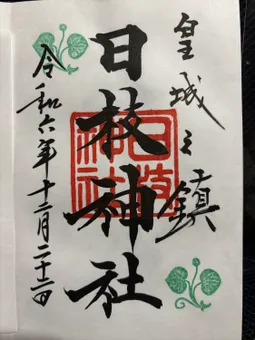 皇城之鎮
日枝神社
日枝神社
令和六年十二月二十二日